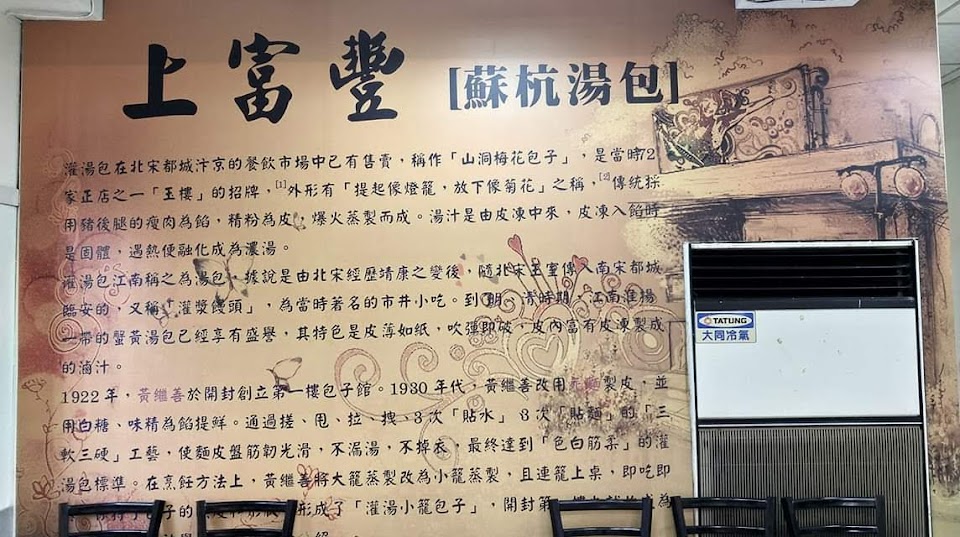 上富豐 [蘇杭湯包]
灌湯包在北宋都城汴京的餐飲市場中已有售賣，稱作「山洞梅花包子」，是當時72
家正店之一「玉樓」的招牌，[1]外形有「提起像燈籠，放下像菊花」之稱，[2]傳統採
用豬後腿的瘦肉為餡，精粉為皮，爆火蒸製而成。湯汁是由皮凍中來，皮凍入餡時
是固體，過熱便融化成為濃湯。
灌湯包江南稱之為湯包，據說是由北宋經歷靖康之變後，隨北宋王室傳入南宋都城
臨安的，又稱「灌漿饅頭」，為當時著名的市井小吃。到了明、清時期，江南淮揚
一帶的蟹黃湯包已經享有盛譽，其特色是皮薄如紙，吹彈即破，皮內富有皮凍製成
的滷汁。
1922年，黃繼善於開封創立第一樓包子館。1930年代，黃繼善改用死麵製皮，並
用白糖、味精為餡提鮮。通過搓、甩、拉、拽、3次「貼水」、3次「貼麵」的「三
軟三硬」工藝，使麵皮盤筋韌光滑，不漏湯，不掉衣，最終達到「色白筋柔」的灌
湯包標準。在烹飪方法上，黃繼善將大籠蒸製改為小籠蒸製，且連籠上桌，即吃即
子的 形成了「灌湯小籠包子」，開封第一樓 為
TATUNG
大同冷氣